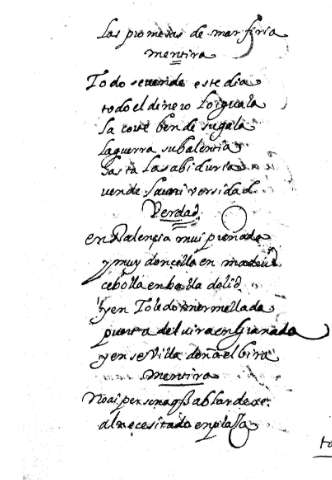 las promesas de marfiria
mentira
Todo seuende este dia
todo el dinero loiguala
la corte bende sugala
laguerra subalentia
hasta lasabiduria
uende launiversidad
Verdad
en Valençia mui preñada
y muy donçella en madrid
cebolla en balladolid
yen Toledo mermellada
puerta deluira en Granada
y en seVilla dona elbira
mentira
noai persona q hablar dexe
al necesitado enplassa